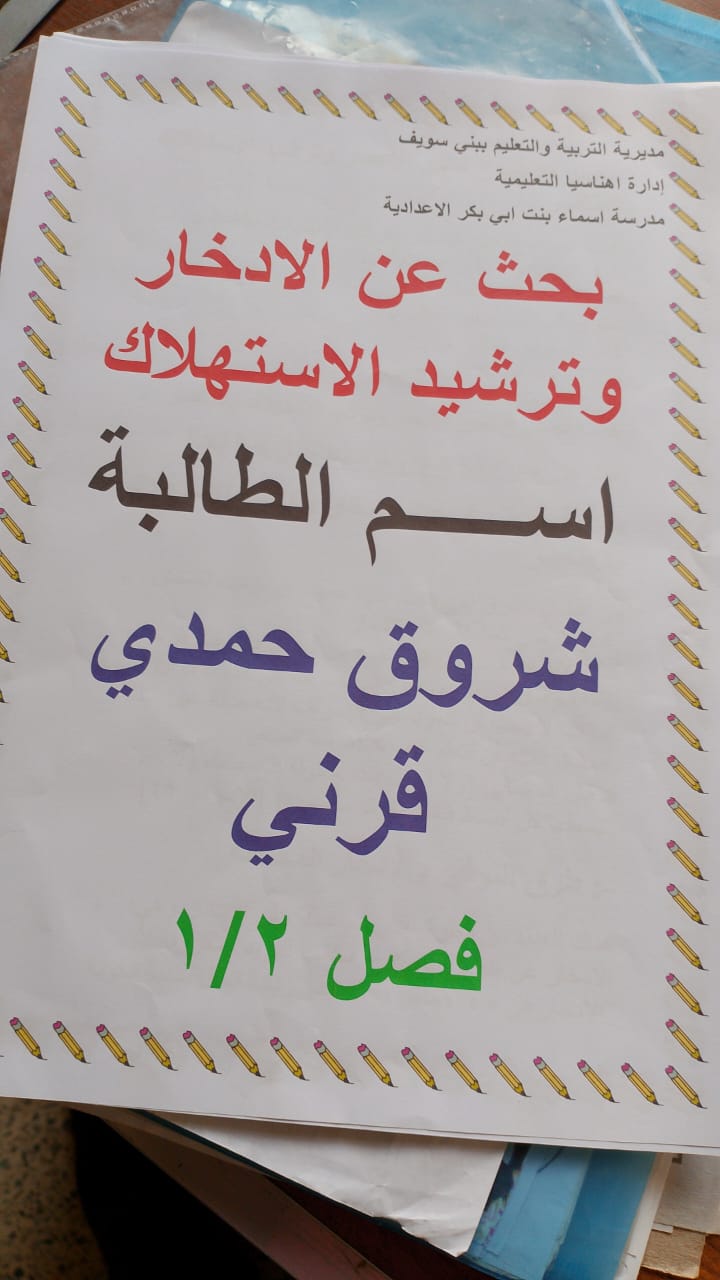 مديرية التربية والتعليم ببني سويف
إدارة اهناسيا التعليمية
مدرسة اسماء بنت ابي بكر الاعدادية
بحث عن الادخار
وترشيد الاستهلاك
اســـــم الطالبة
شروق حمدي
قرني
فصل ١/٢